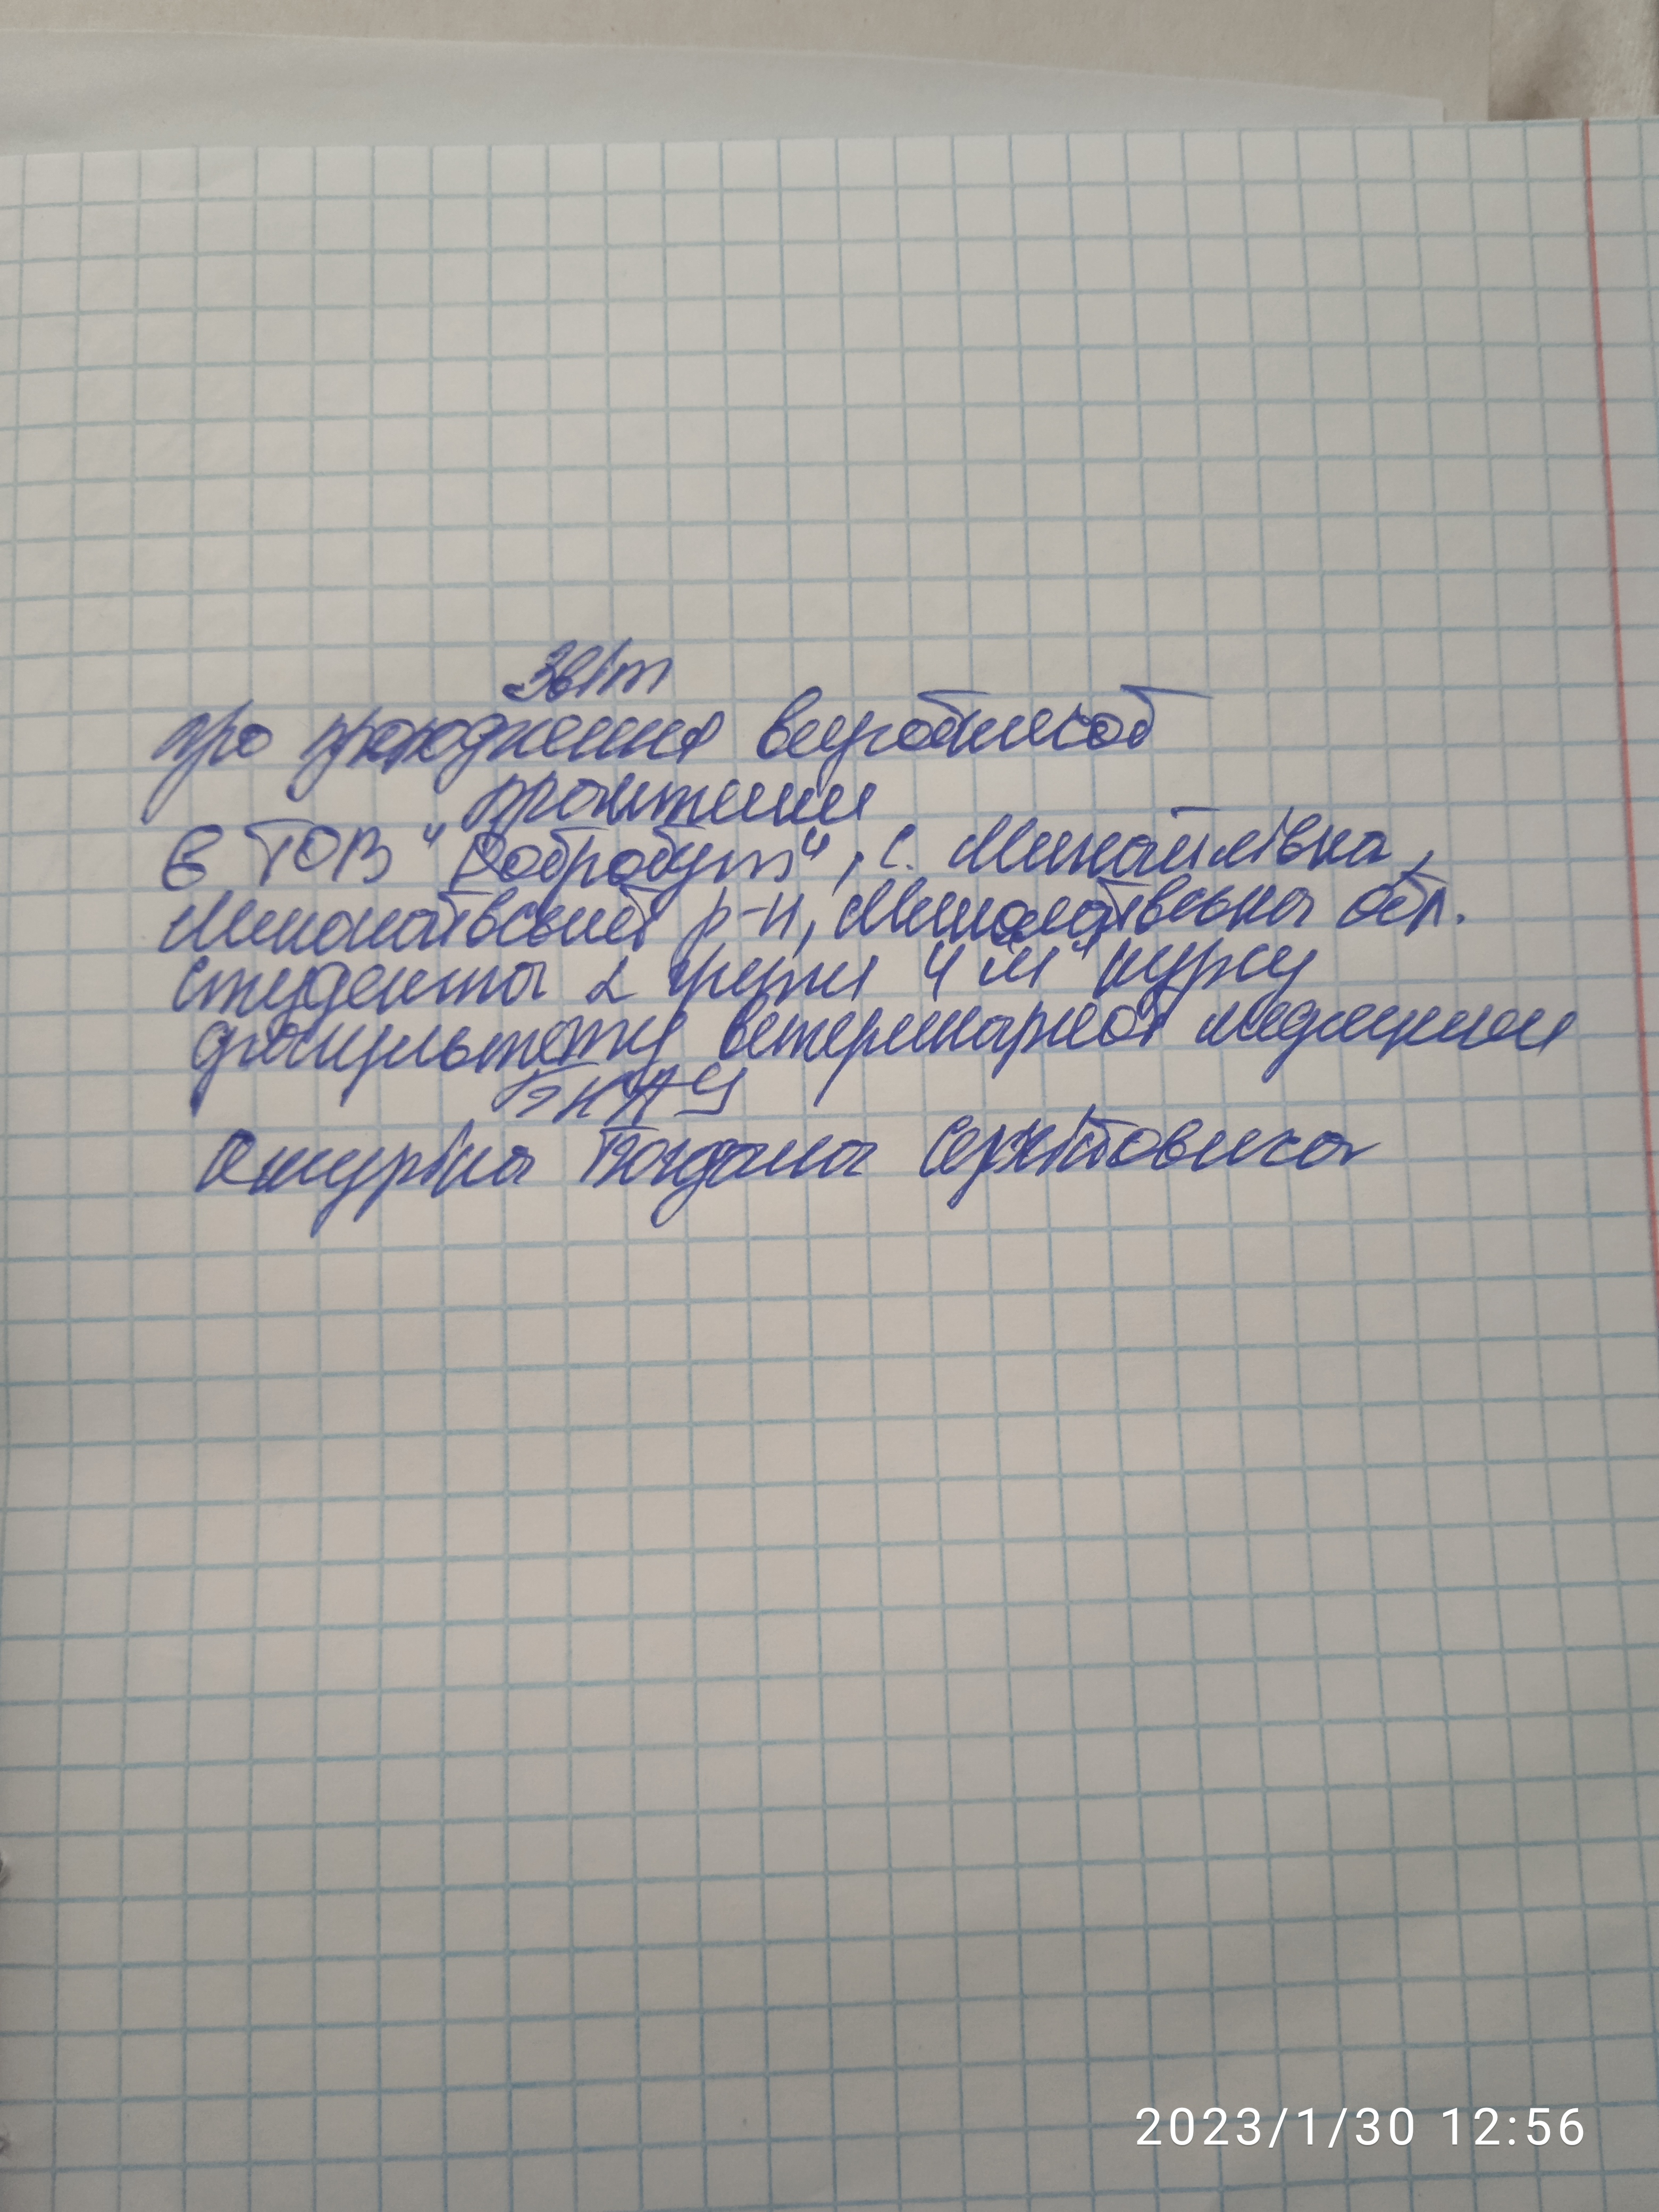 Звіт
про проходження виробничої
практики
в ТОВ "Добробут", с. Михайлівка,
Миколаївський р-н, Миколаївська обл.
студента 2 групи 4 "М" курсу
факультету ветеринарної медицини
БНАУ
Богдана Сергійовича
2023/1/30 12:56